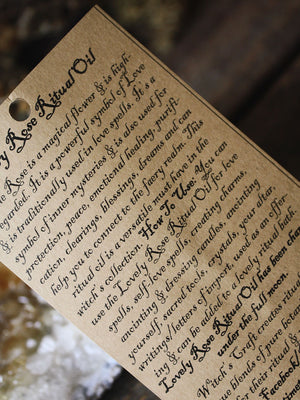 ry Rose Ritual Oil
e Rose is a magical flower & is high
egarded. It is a powerful symbol of Love
& is traditionally used in love spells. It is a
symbol of inner mysteries & is also used for
protection, peace, emotional healing, purifi-
cation, clearings, blessings, dreams and can
help you to connect to the faery realm. This
ritual oil is a versatile must have in the
witch's collection. How To Use: You can
use the Lovely Rose Ritual Oil for love
spells, self-love spells, creating charms,
anointing & dressing candles, anointing
yourself, sacred tools, crystals, your altar,
writings/letters of import, used as an offer
ing & can be added to a lovely ritual bath
Lovely Rose Ritual Oil has been char
under the full moon.
Witch's Craft creates ritual
ue blends of pure botan
for these ritual &
d their
Facebook